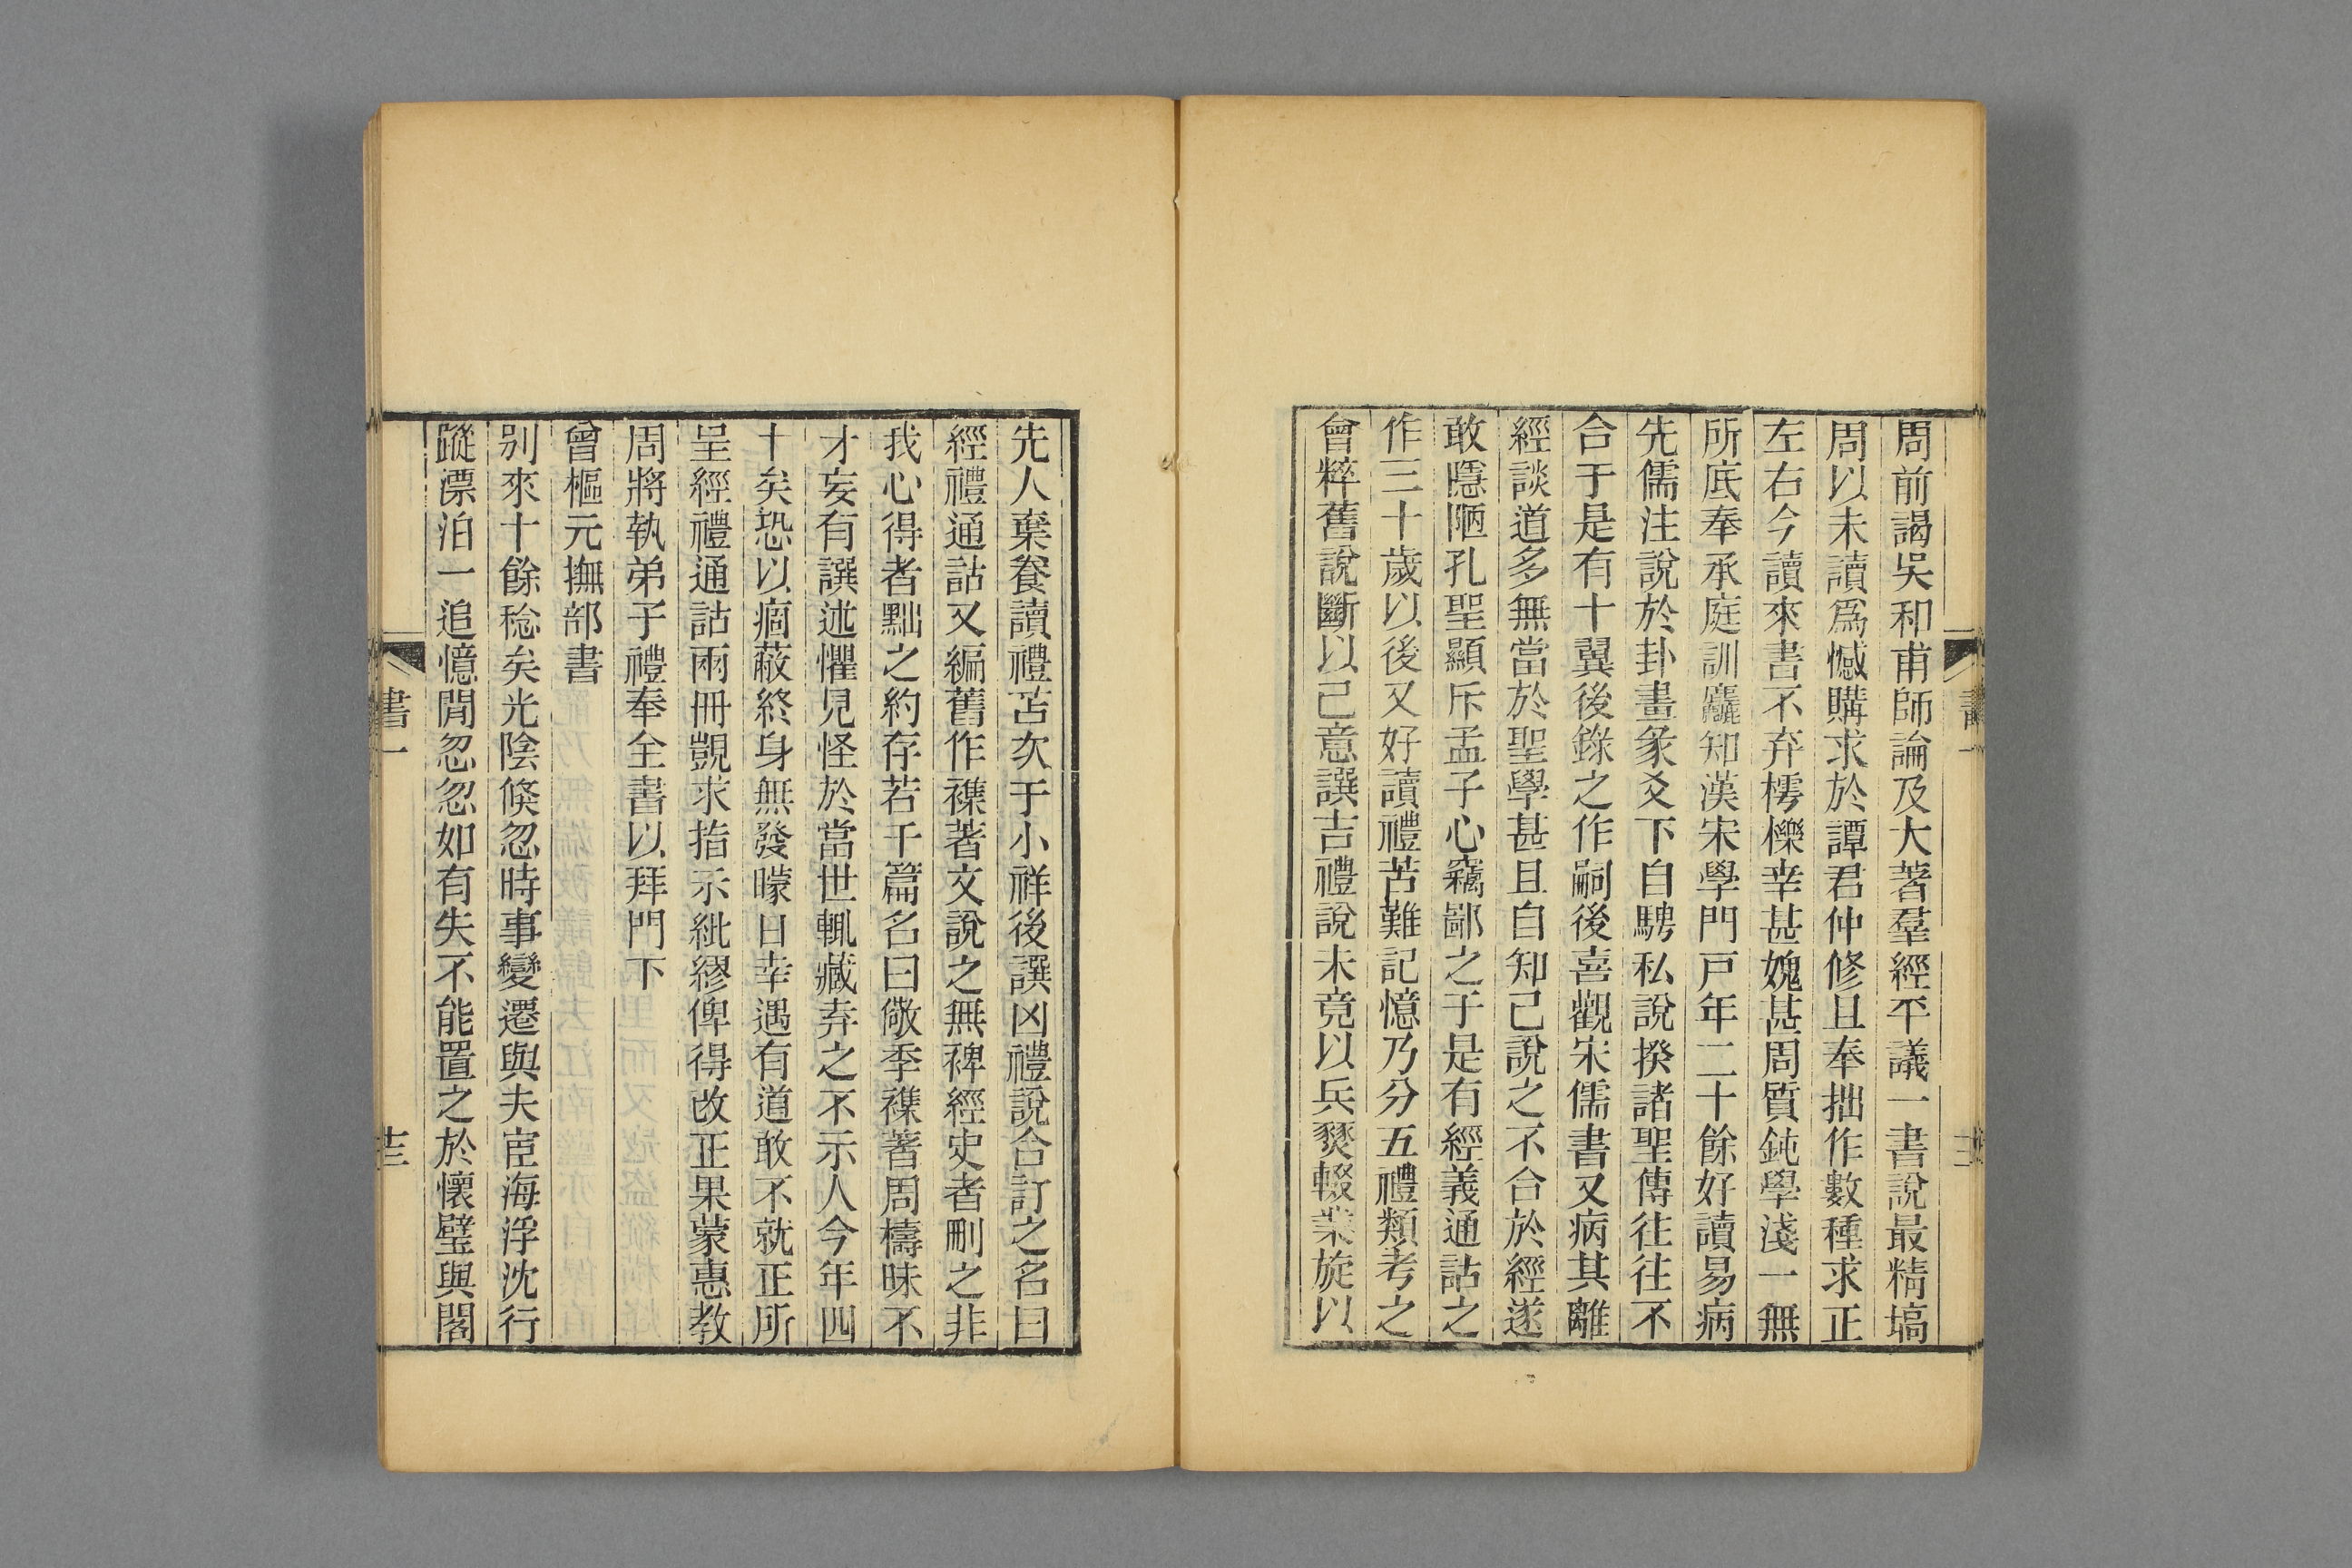 周前謁吳和甫師論及大著羣經平議一書說最精塙
周以未讀爲憾購求於譚君仲修且奉拙作數種求正
左右今讀來書不弃樗櫟幸甚媿甚周質鈍學淺一無
所底奉承庭訓麤知漢宋學門戸年二十餘好讀易病
先儒注說於卦畫彖爻下自騁私說揆諸聖傳往往不
合于是有十翼後錄之作嗣後喜觀宋儒書又病其離
經談道多無當於聖學甚且自知己說之不合於經遂
敢隱陋孔聖顯斥孟子心竊鄙之于是有經義通詁之
作三十歲以後又好讀禮苦難記憶乃分五禮類考之
會粹舊說斷以己意譔吉禮說未竟以兵燹輟業旋以
書一
先人棄養讀禮苫次于小祥後譔凶禮說合訂之名曰
經禮通詁又編舊作襍著文說之無稗經史者刪之非
我心得者黜之約存若干篇名曰儆季襍著周檮昧不
才妄有譔述懼見怪於當世輒藏弆之不示人今年四
十矣恐以痼蔽終身無發矇日幸遇有道敢不就正所
呈經禮通詁兩冊覬求指示紕繆俾得改正果蒙惠教
周將執弟子禮奉全書以拜門下
曾樞元撫部書
別來十餘稔矣光陰倏忽時事變遷與夫宦海浮沈行
蹤漂泊一追憶閒忽忽如有失不能置之於懷璧與閣
書一